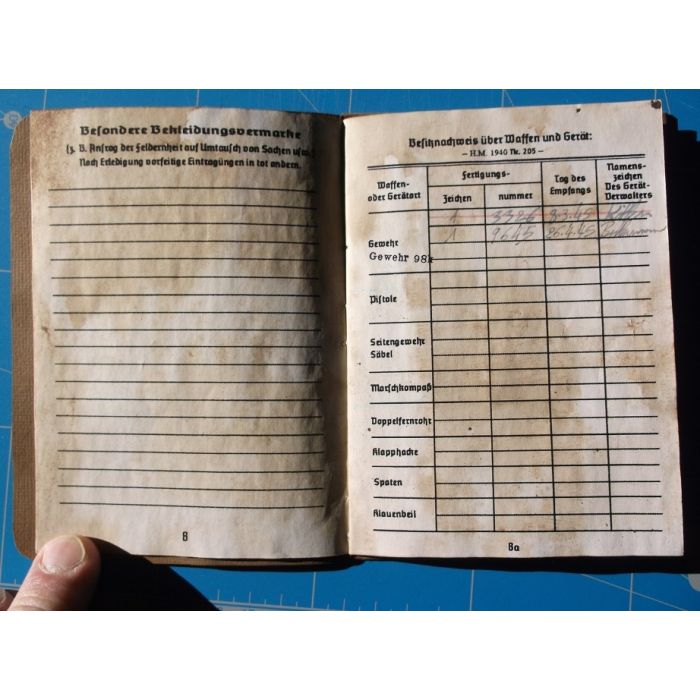 Besondere Bekleidungsvermarke
(z. B. Antrag der Feldernheit auf Umtausch von Sachen usw.)
Nach Erledigung vorseitige Eintragungen in tot andern.
8
Besitznachweis über Waffen und Gerät:
– H.M. 1940 Nr. 205 –
Waffen- oder Gerätart
Fertigungs-
Zeichen
nummer
Tag des Empfangs
Namens- zeichen Des Gerät- Verwalters
1 3326 8.3.45
1 9645 25.4.45
Gewehr
Gewehr 98k
Pistole
Seitengewehr
Säbel
Marschkompaß
Doppelfernrohr
Klapphacke
Spaten
Klauenbeil
8a